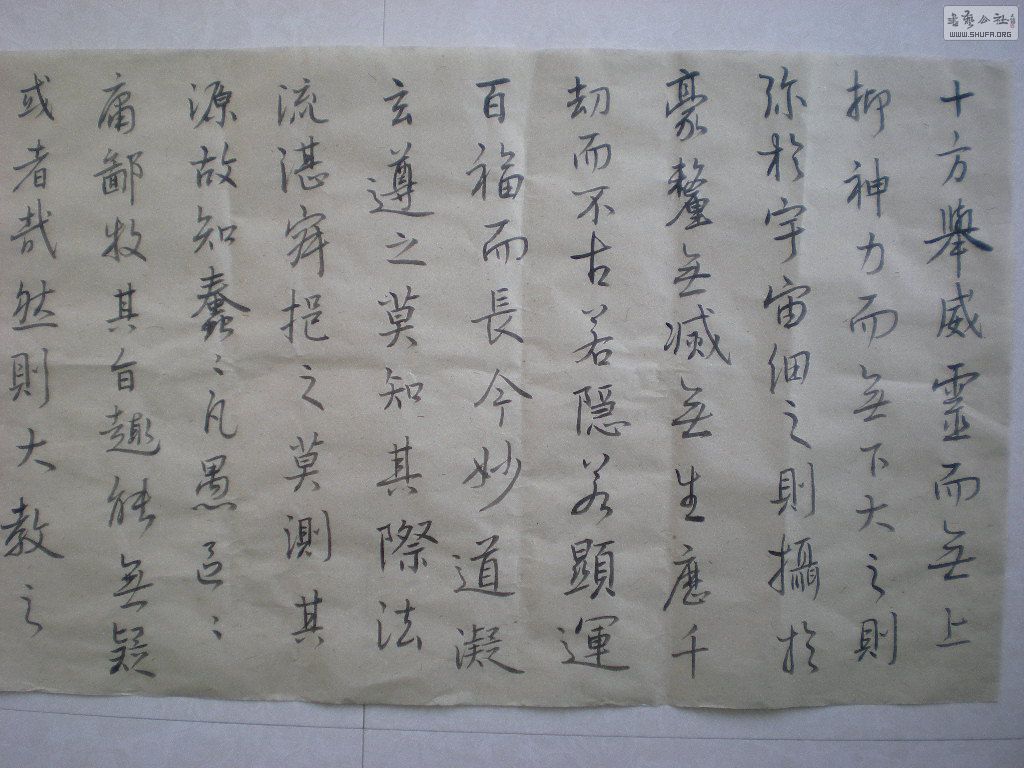 十方舉威靈而無上
抑神力而無下大之則
弥於宇宙細之則攝於
豪釐無滅無生歷千
劫而不古若隱若顯運
百福而長今妙道凝
玄遵之莫知其際法
流湛寂挹之莫測其
源故知蠢〻凡愚區〻
庸鄙投其旨趣能無疑
或者哉然則大教之
書藝公社
WWW.SHUFA.ORG